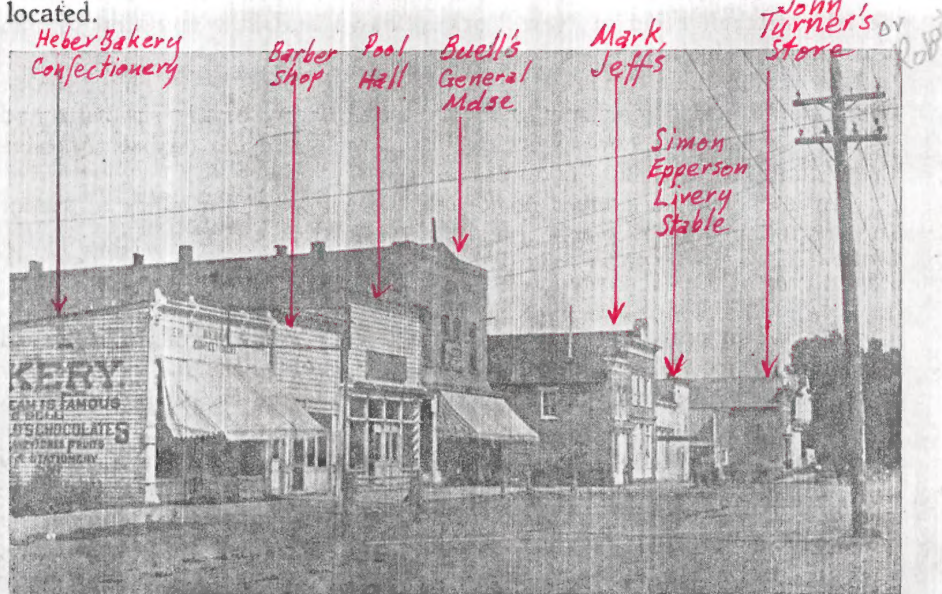 located.
Heber Bakery
Confectionery
Barber
Shop
Pool
Hall
Buell's
General
Mdse
Mark
Jeff's
Simon
Epperson
Livery
Stable
John
Turner's
Store
or
KERY.
FAMOUS
CHOCOLATES
FRUITS
STATIONERY